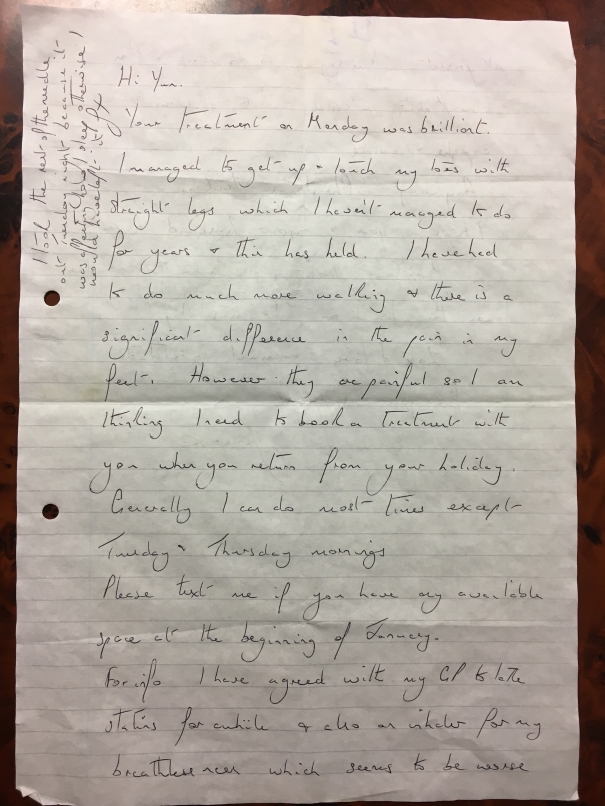 Hi Yun.
Your treatment on Monday was brilliant.
I managed to get up & touch my toes with
straight legs which I haven't managed to do
for years & this has held. I have had
to do much more walking & there is a
significant difference in the pain in my
feet. However they are painful so I am
thinking I need to book a treatment with
you when you return from your holiday.
Generally I can do most times except
Tuesday & Thursday mornings
Please text me if you have any available
space at the beginning of January.
For info I have agreed with my GP to take
statins for awhile & also an inhaler for my
breathlessness which seems to be worse
I took the rest of the needle
out Tuesday night because it
was affecting my sleep otherwise I
would have left it